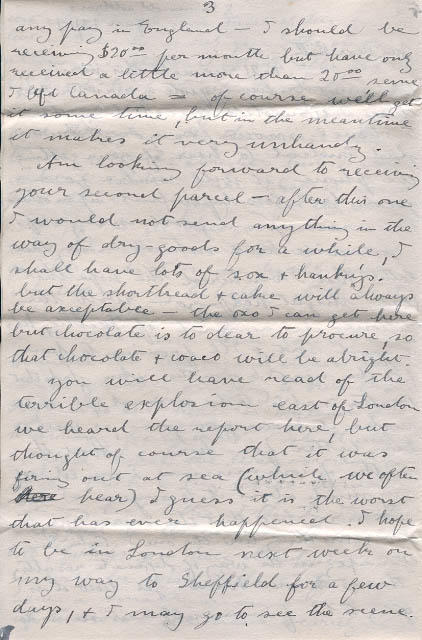 3
any pay in England – I should be
receiving $20.00 per month but have only
received a little more than 20.00 since
I left Canada – of course we'll get
it some time, but in the meantime
it makes it very unhandy.
Am looking forward to receiving
your second parcel – after this one
I would not send anything in the
way of dry-goods for a while, I
shall have lots of sox + hankys.
but the shortbread + cake will always
be axceptable – the oxo I can get here
but chocolate is to dear to procure, so
that chocolate + cocoa will be alright.
You will have read of the
terrible explosion east of London
we heard the report here, but
thought of course that it was
firing out at sea (which we often
hear) I guess it is the worst
that has ever happened. I hope
to be in London next week on
my way to Sheffield for a few
days, + I may go to see the scene.